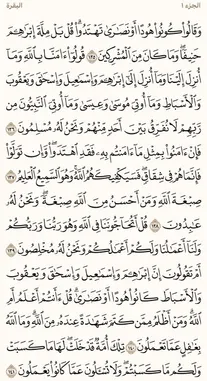 الجزء ١ البقرة
وَقَالُوا۟ كُونُوا۟ هُودًا أَوْ نَصَٰرَىٰ تَهْتَدُوا۟ ۗ قُلْ بَلْ مِلَّةَ إِبْرَٰهِـۧمَ
حَنِيفًا ۖ وَمَا كَانَ مِنَ ٱلْمُشْرِكِينَ ١٣٥ قُولُوٓا۟ ءَامَنَّا بِٱللَّهِ وَمَآ
أُنزِلَ إِلَيْنَا وَمَآ أُنزِلَ إِلَىٰٓ إِبْرَٰهِـۧمَ وَإِسْمَٰعِيلَ وَإِسْحَٰقَ وَيَعْقُوبَ
وَٱلْأَسْبَاطِ وَمَآ أُوتِىَ مُوسَىٰ وَعِيسَىٰ وَمَآ أُوتِىَ ٱلنَّبِيُّونَ مِن
رَّبِّهِمْ لَا نُفَرِّقُ بَيْنَ أَحَدٍ مِّنْهُمْ وَنَحْنُ لَهُۥ مُسْلِمُونَ ١٣٦
فَإِنْ ءَامَنُوا۟ بِمِثْلِ مَآ ءَامَنتُم بِهِۦ فَقَدِ ٱهْتَدَوا۟ ۖ وَّإِن تَوَلَّوْا۟
فَإِنَّمَا هُمْ فِى شِقَاقٍ ۖ فَسَيَكْفِيكَهُمُ ٱللَّهُ ۚ وَهُوَ ٱلسَّمِيعُ ٱلْعَلِيمُ ١٣٧
صِبْغَةَ ٱللَّهِ ۖ وَمَنْ أَحْسَنُ مِنَ ٱللَّهِ صِبْغَةً ۖ وَنَحْنُ لَهُۥ
عَٰبِدُونَ ١٣٨ قُلْ أَتُحَآجُّونَنَا فِى ٱللَّهِ وَهُوَ رَبُّنَا وَرَبُّكُمْ
وَلَنَآ أَعْمَٰلُنَا وَلَكُمْ أَعْمَٰلُكُمْ وَنَحْنُ لَهُۥ مُخْلِصُونَ ١٣٩
أَمْ تَقُولُونَ إِنَّ إِبْرَٰهِـۧمَ وَإِسْمَٰعِيلَ وَإِسْحَٰقَ وَيَعْقُوبَ
وَٱلْأَسْبَاطَ كَانُوا۟ هُودًا أَوْ نَصَٰرَىٰ ۗ قُلْ ءَأَنتُمْ أَعْلَمُ أَمِ
ٱللَّهُ ۗ وَمَنْ أَظْلَمُ مِمَّن كَتَمَ شَهَٰدَةً عِندَهُۥ مِنَ ٱللَّهِ ۗ وَمَا ٱللَّهُ
بِغَٰفِلٍ عَمَّا تَعْمَلُونَ ١٤٠ تِلْكَ أُمَّةٌ قَدْ خَلَتْ ۖ لَهَا مَا كَسَبَتْ
وَلَكُم مَّا كَسَبْتُمْ ۖ وَلَا تُسْـَٔلُونَ عَمَّا كَانُوا۟ يَعْمَلُونَ ١٤١